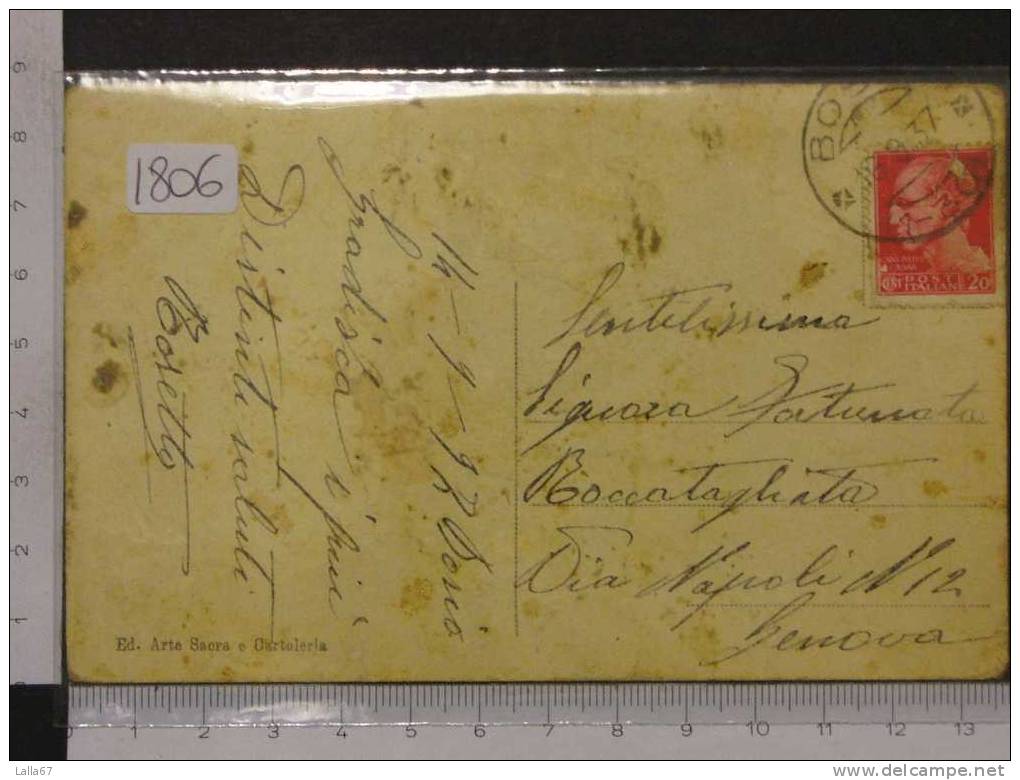 1806
14-9-937 Bosio
Gradisca i più
Distinti saluti
Rosetto
Ed. Arte Sacra e Cartoleria
BOS
9 37
POSTE
ITALIANE
CENT
20
Gentilissima
Signora Fortunata
Roccatagliata
Via Napoli N 12
Genova
9
8
7
6
5
4
3
2
1
0 1 2 3 4 5 6 7 8 9 10 11 12 13
Lalla67
delcampe.net